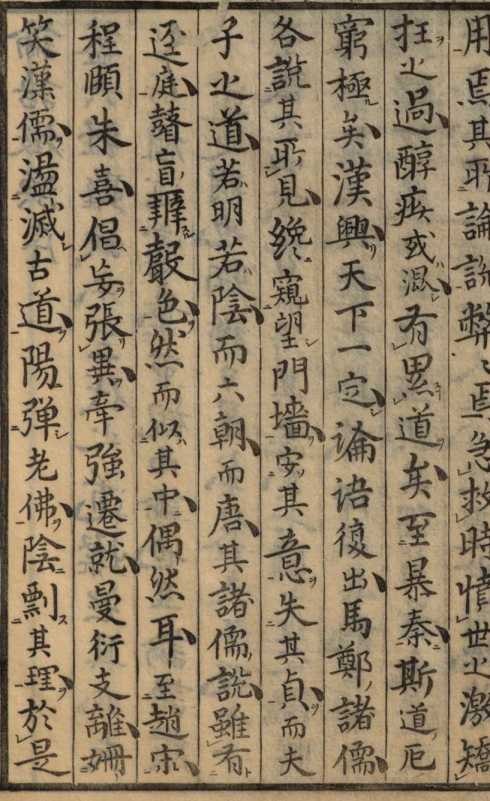 用焉其所論説弊々焉急救時憤世之激矯
抂之過醇疵或混有累道矣至暴秦斯道厄
窮極矣漢興天下一定論語復出馬鄭諸儒
各説其所見纔窺望門墻安其意失其貞而夫
子之道若明若陰而六朝而唐其諸儒説雖有
逕庭瞽盲辯嚴色然而似其中偶然耳至趙宋
程頤朱喜倡妄張異牽強遷就曼衍支離姍
笑漢儒盪滅古道陽弾老佛陰剽其理於是